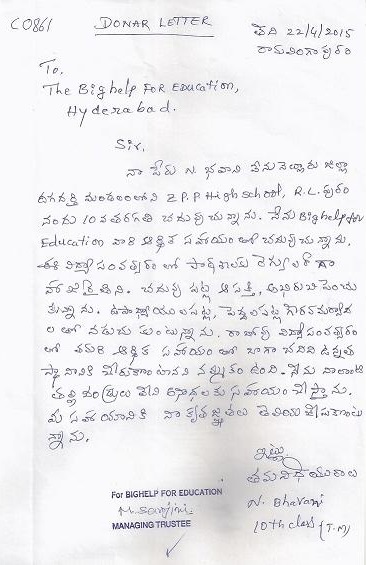 C0861 DONAR LETTER తేది 22/4/2015
రామలింగాపురం
To,
The Bighelp FOR Education,
Hyderabad.
Sir,
నా పేరు N. భవాని నేను నెల్లూరు జిల్లా
దగదర్తి మండలంలోని Z.P.P High School, R.L. పురం
నందు 10వ తరగతి చదువుచున్నాను. నేను Bighelp for
Education వారి ఆర్థిక సహాయంతో చదువుచున్నాను.
ఈ విద్యా సంవత్సరంలో పాఠశాలకు రెగ్యులర్ గా
హాజరైతిని. చదువు పట్ల ఆసక్తి, అభిరుచి పెంచు
కున్నాను. ఉపాధ్యాయులపట్ల, పెద్దలపట్ల గౌరవమర్యాద
లతో నడుచుకుంటున్నాను. రాబోవు విద్యాసంవత్సరం
లో తమరి ఆర్థిక సహాయంతో బాగా చదివి ఉన్నత
స్థానానికి చేరుకుంటానని నమ్మకం ఉంది. నేను నాలాంటి
తల్లి దండ్రులు లేని అనాథలకు సహాయం చేస్తాను.
మీ సహాయానికి నా కృతజ్ఞతలు తెలియజేసుకుంటు
న్నాను.
ఇట్లు
తమ విధేయురాలు
N. Bhavani
10th class (T.M)
For BIGHELP FOR EDUCATION
MANAGING TRUSTEE